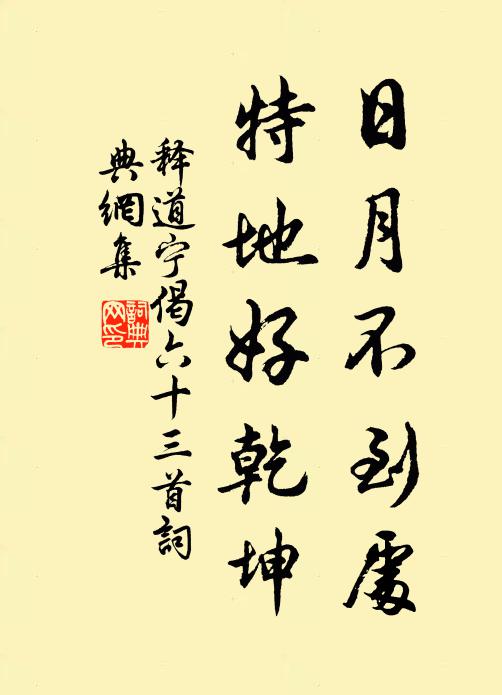 日月不到處
特地好乾坤
释道宁偈六十三首詞
典網集
詞典网印